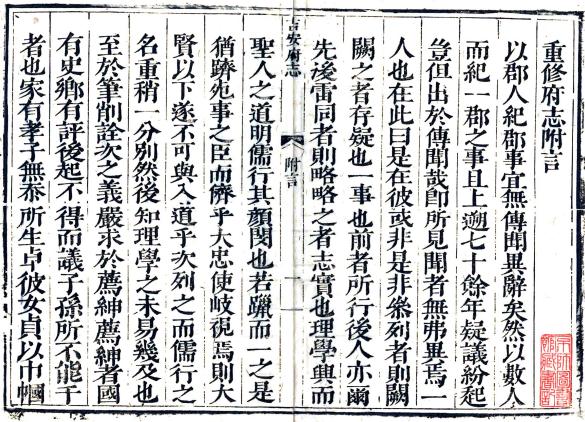 重修府志附言
以郡人紀郡事宜無傳聞異辭矣然以數人
而紀一郡之事且上遡七十餘年疑議紛起
豈但出於傳聞哉卽所見聞者無弗異焉一
人也在此曰是在彼或非是非叅列者則闕
闕之者存疑也一事也前者所行後人亦爾
先後雷同者則略略之者志實也理學興而
吉安府志
附言
一
聖人之道明儒行其顔閔也若躐而一之是
猶跡宛事之臣而儕乎大忠使岐視焉則大
賢以下遂不可與入道乎次列之而儒行之
名重稍一分别然後知理學之未易幾及也
至於筆削詮次之義嚴求於薦紳薦紳者國
有史鄉有評後起不得而議子孫所不能干
者也家有孝子無忝所生卓彼女貞以巾幗